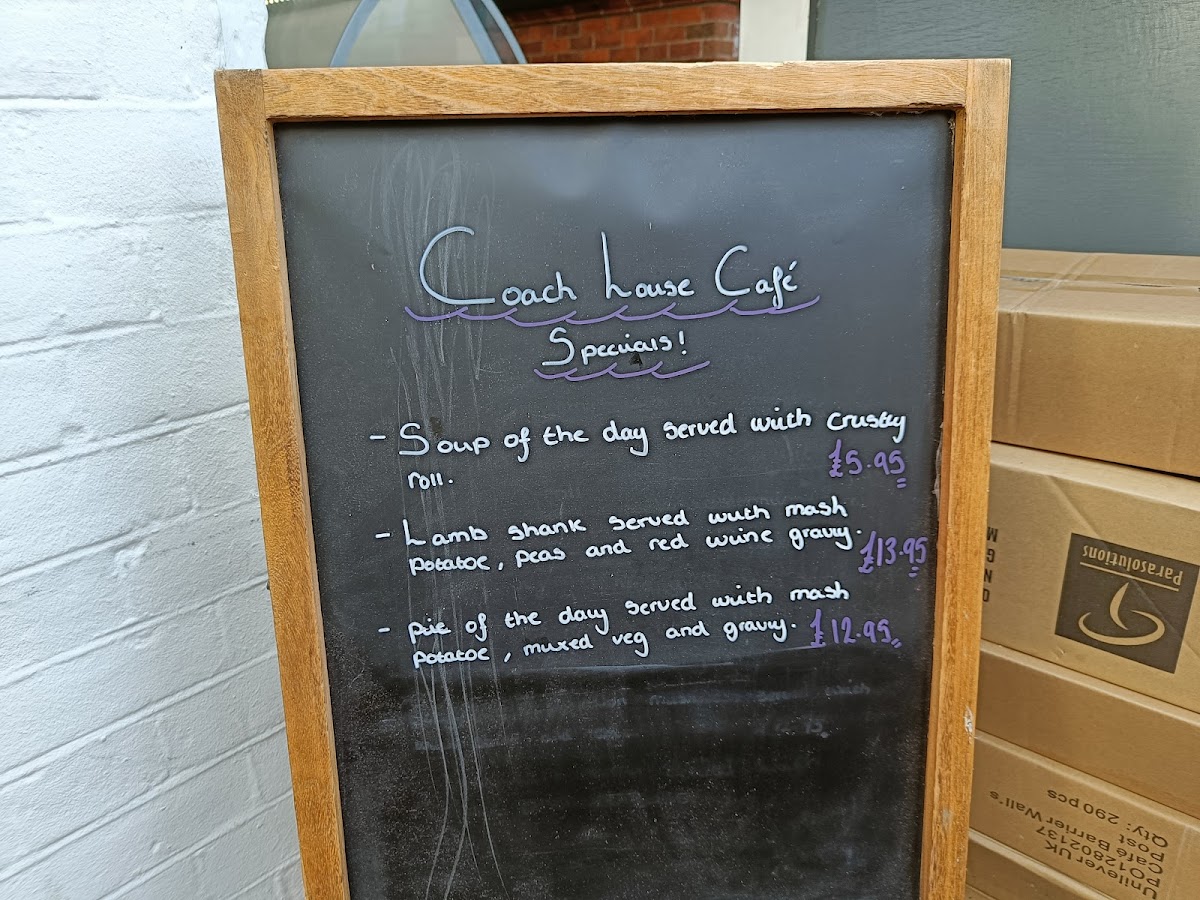 Coach House Café
Specials!
- Soup of the day served with crusty
roll.
£5.95
- Lamb shank served with mash
potatoe, peas and red wine gravy.
£13.95
- pie of the day served with mash
potatoe, mixed veg and gravy. £12.95
Parasolutions
Unilever UK
PO12802137
Café Barrier Wall's
Post
Qty: 290 pcs